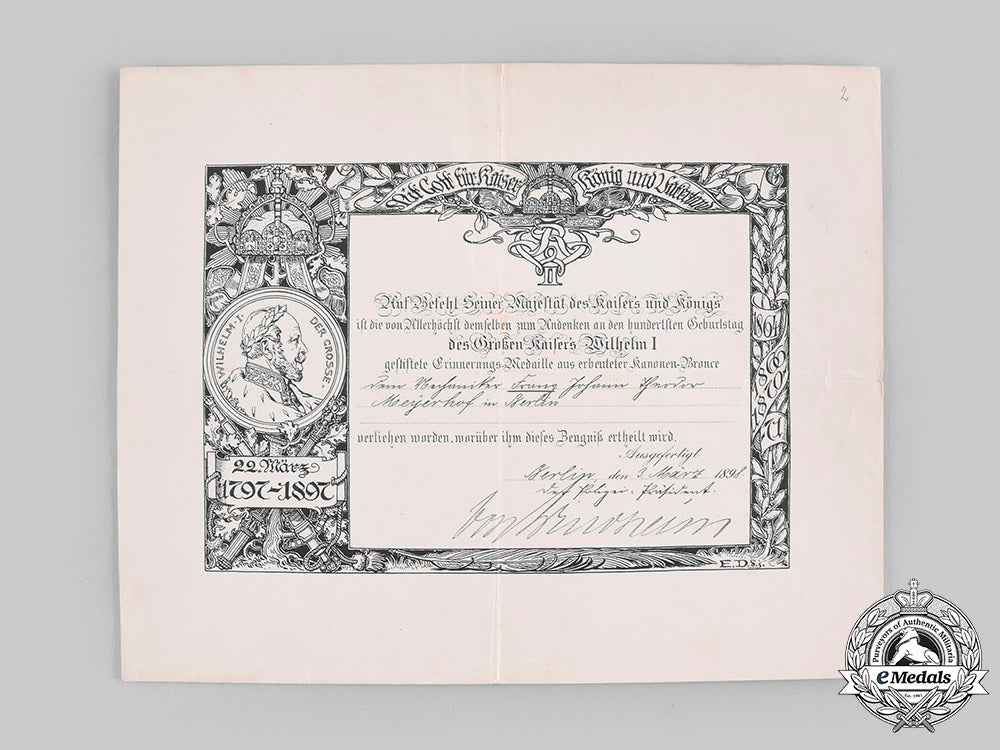 2
Mit Gott für Kaiser König und Vaterland
WILHELM · I · DER GROSSE
22. März
1797-1897
Auf Befehl Seiner Majestät des Kaisers und Königs
ist die von Allerhöchst demselben zum Andenken an den hundertsten Geburtstag
des Großen Kaisers Wilhelm I
gestiftete Erinnerungs-Medaille aus erbeuteter Kanonen-Bronce
dem Mechaniker Franz Johann Theodor
Meyerhof in Berlin
verliehen worden, worüber ihm dieses Zeugniß ertheilt wird.
Ausgefertigt
Berlin, den 3. März 1898
Der Polizei-Präsident.
von Windheim
1864
1866
1870
71
E.D.
Purveyors of Authentic Militaria
eMedals